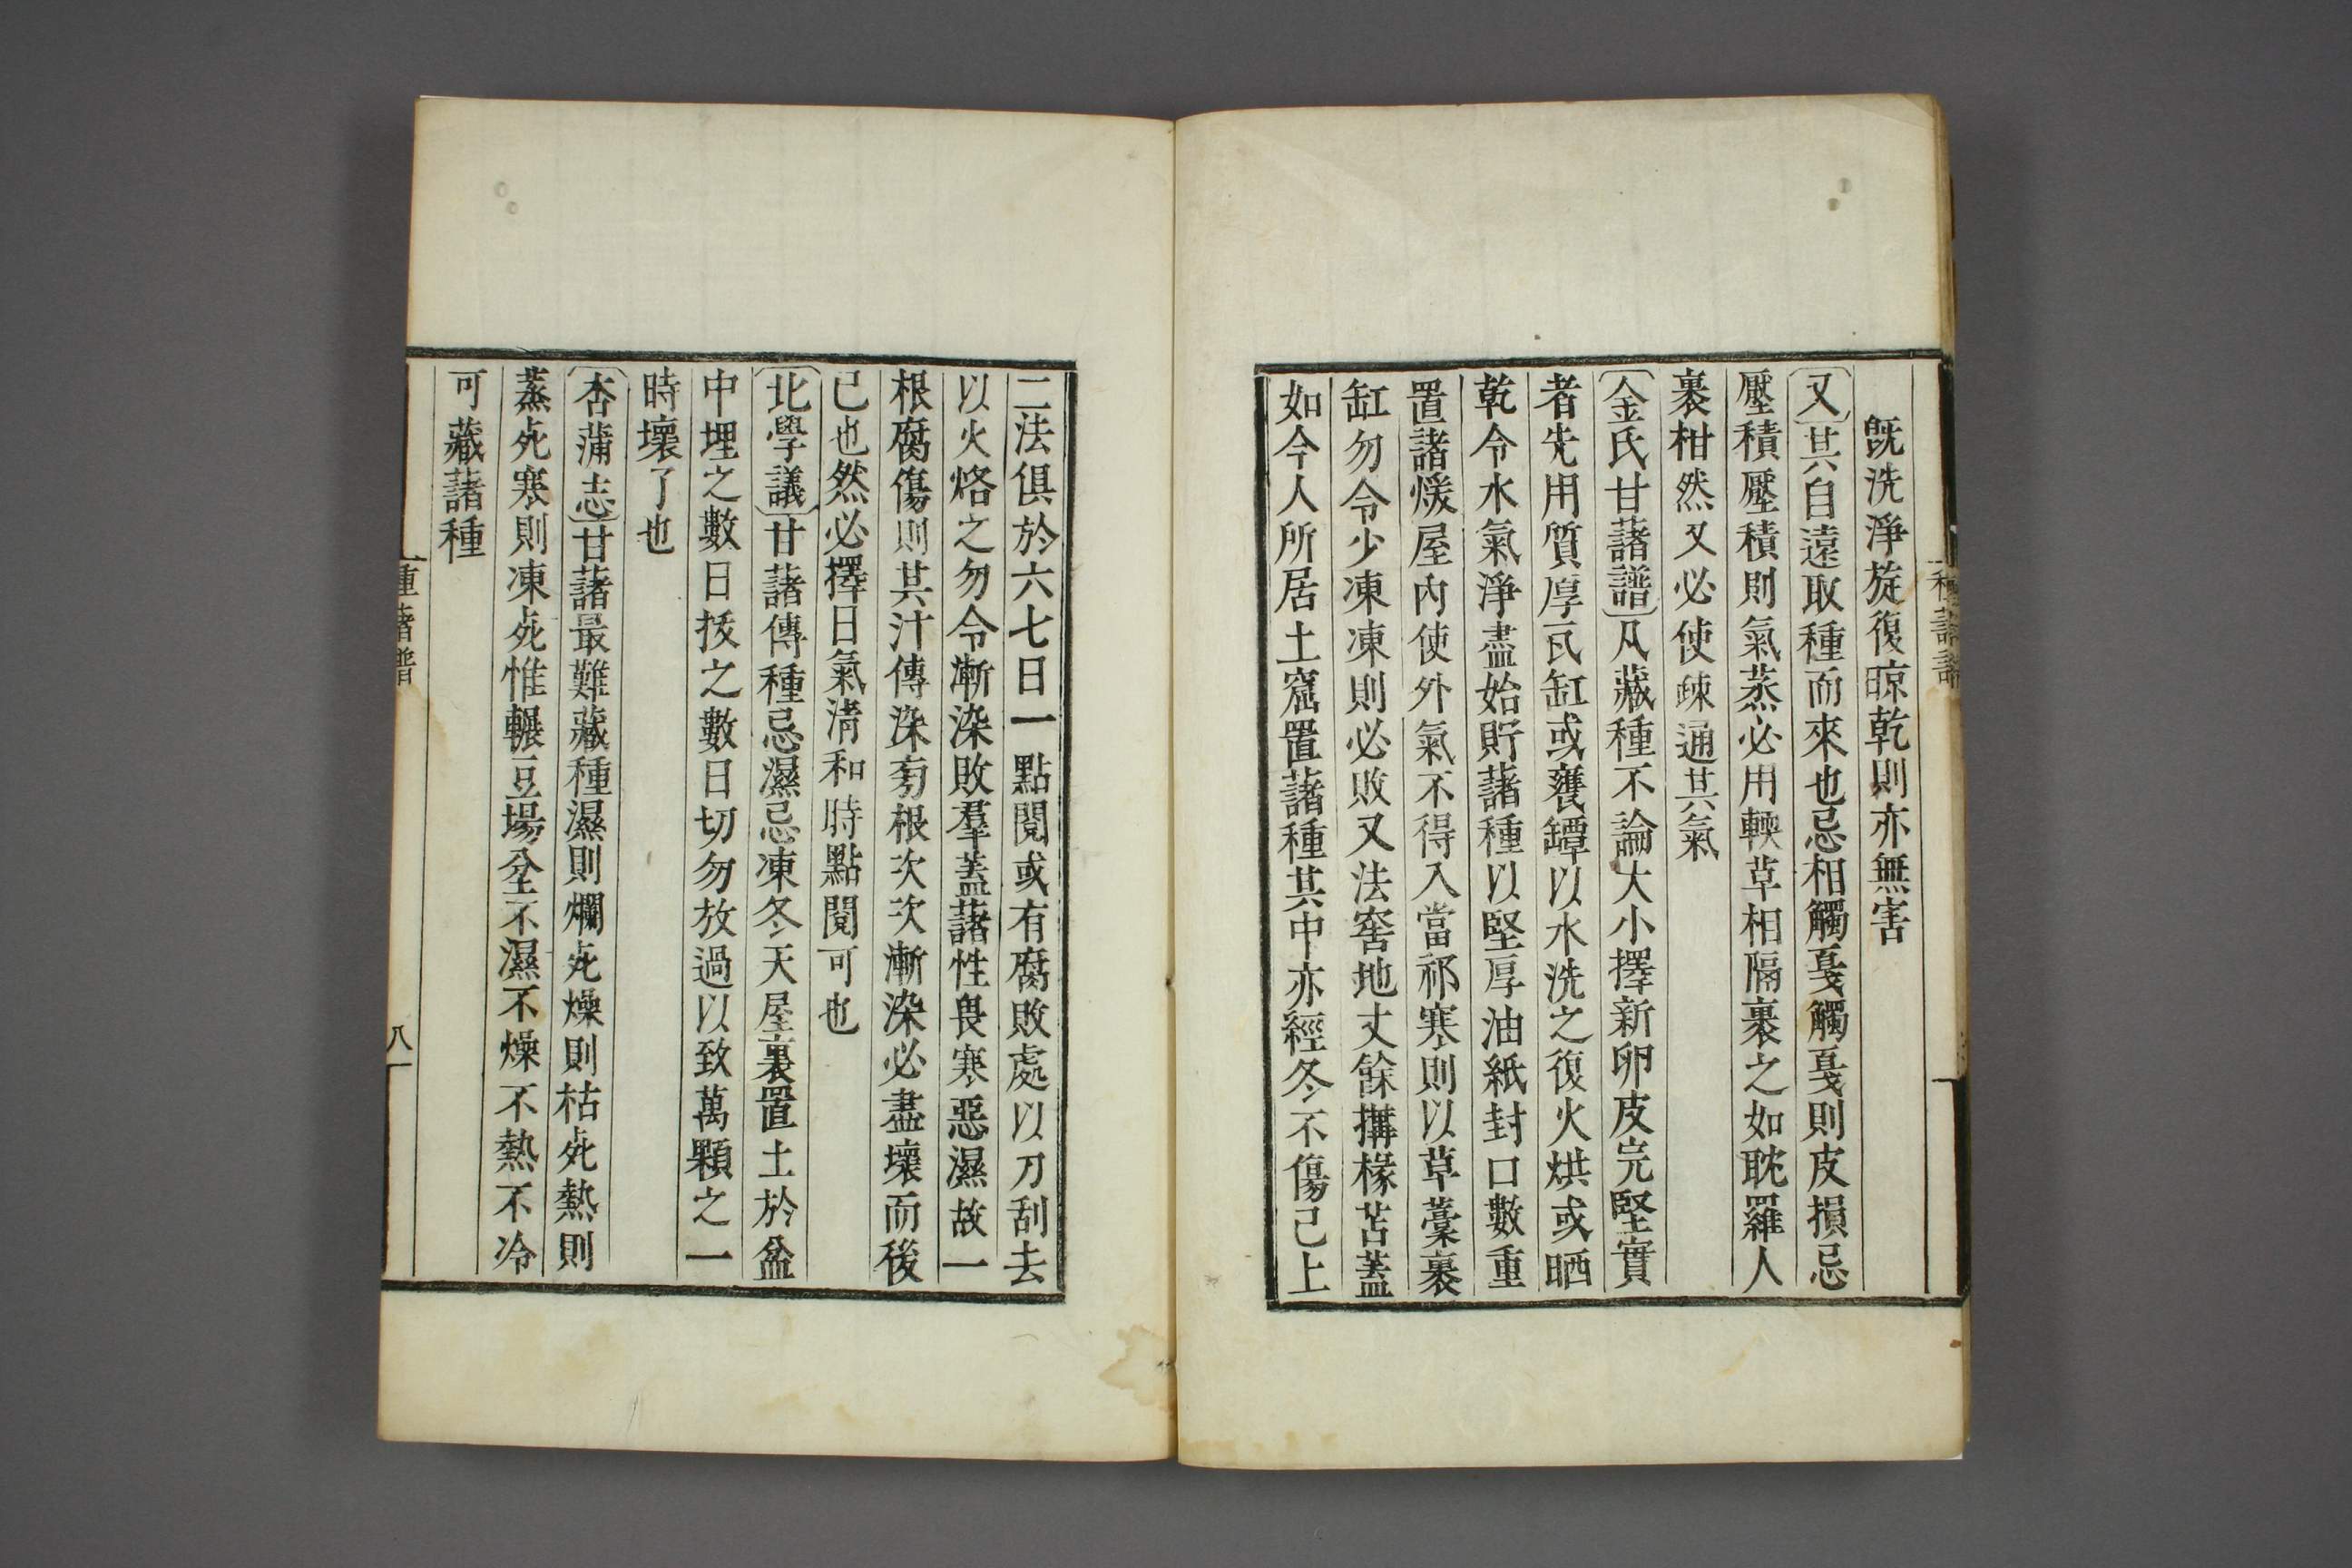 種藷譜
旣洗淨旋復晾乾則亦無害
又其自遠取種而來也忌相觸戛觸戛則皮損忌
壓積壓積則氣蒸必用輭草相隔裹之如耽羅人
裹柑然又必使疎通其氣
金氏甘藷譜凡藏種不論大小擇新卵皮完堅實
者先用質厚瓦缸或甕罈以水洗之復火烘或晒
乾令水氣淨盡始貯藷種以堅厚油紙封口數重
置諸煖屋內使外氣不得入當祁寒則以草藁裹
缸勿令少凍凍則必敗又法窖地丈餘搆椽苫蓋
如今人所居土窟置藷種其中亦經冬不傷已上
二法俱於六七日一點閱或有腐敗處以刀刮去
以火烙之勿令漸染敗羣蓋藷性畏寒惡濕故一
根腐傷則其汁傳染旁根次次漸染必盡壞而後
已也然必擇日氣淸和時點閱可也
北學議甘藷傳種忌濕忌凍冬天屋裏置土於盆
中埋之數日拔之數日切勿放過以致萬顆之一
時壞了也
杏蒲志甘藷最難藏種濕則爛死燥則枯死熱則
蒸死寒則凍死惟輾豆場坌不濕不燥不熱不冷
可藏藷種
種藷譜
八